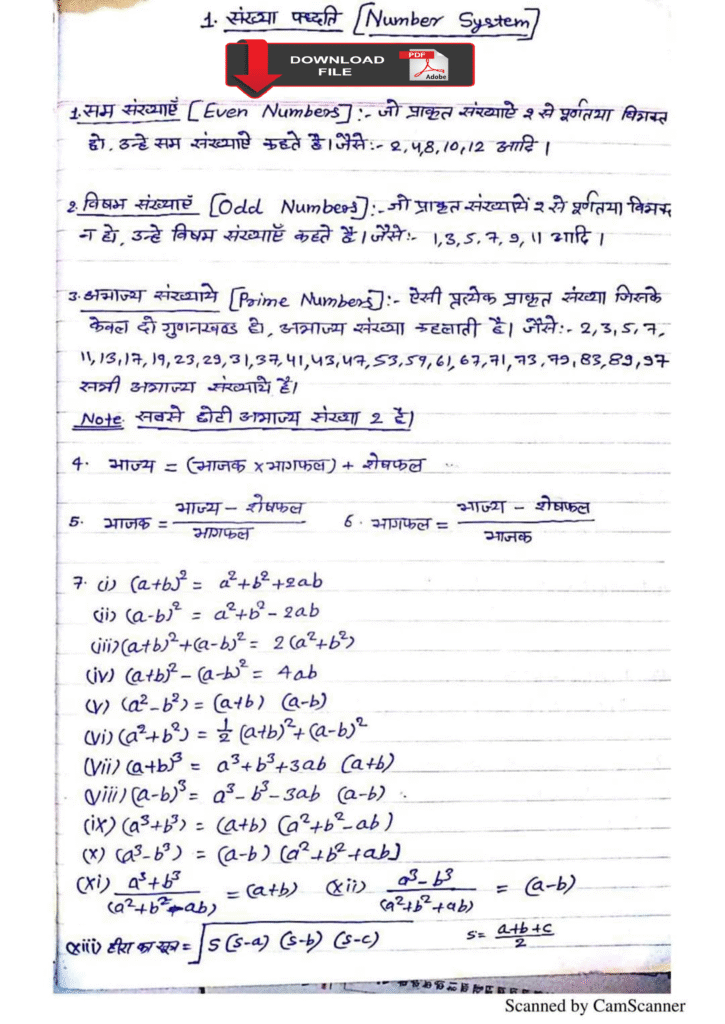 1. संख्या पद्धति [Number System]
DOWNLOAD FILE
PDF
Adobe
1. सम संख्याएँ [Even Numbers] :- जो प्राकृत संख्याऐ २ से पूर्णतया विभक्त
हो, उन्हे सम संख्याऐ कहते है। जैसे:- 2,4,8,10,12 आदि ।
2. विषम संख्याएँ [Odd Numbers] :- जो प्राकृत संख्यायें २ से पूर्णतया विभक्त
न हो, उन्हे विषम संख्याएँ कहते है। जैसे:- 1,3,5,7,9,11 आदि ।
3. अभाज्य संख्याये [Prime Numbers] :- ऐसी प्रत्येक प्राकृत संख्या जिसके
केवल दो गुणनखण्ड हो, अभाज्य संख्या कहलाती है। जैसे:- 2,3,5,7,
11,13,17,19,23,29,31,37,41,43,47,53,59,61,67,71,73,79,83,89,97
सभी अभाज्य संख्याये है।
Note. सबसे छोटी अभाज्य संख्या 2 है।
4. भाज्य = (भाजक × भागफल) + शेषफल
5. भाजक = (भाज्य - शेषफल)/भागफल 6. भागफल = (भाज्य - शेषफल)/भाजक
7. (i) (a+b)² = a²+b²+2ab
(ii) (a-b)² = a²+b²-2ab
(iii) (a+b)²+(a-b)² = 2(a²+b²)
(iv) (a+b)²-(a-b)² = 4ab
(v) (a²-b²) = (a+b) (a-b)
(vi) (a²+b²) = ½ (a+b)²+(a-b)²
(vii) (a+b)³ = a³+b³+3ab (a+b)
(viii) (a-b)³ = a³-b³-3ab (a-b)
(ix) (a³+b³) = (a+b) (a²+b²-ab)
(x) (a³-b³) = (a-b) (a²+b²+ab)
(xi) (a³+b³)/(a²+b²-ab) = (a+b) (xii) (a³-b³)/(a²+b²+ab) = (a-b)
(xiii) हीरो का सूत्र = √s(s-a) (s-b) (s-c) s = (a+b+c)/2
Scanned by CamScanner